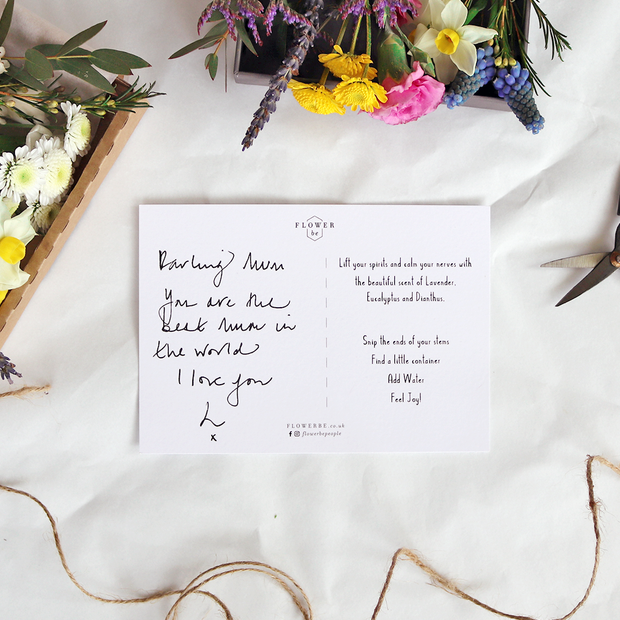 FLOWER
be
Darling Mum
You are the
Best Mum in
the world
I love you
L
x
Lift your spirits and calm your nerves with
the beautiful scent of Lavender,
Eucalyptus and Dianthus.
Snip the ends of your stems
Find a little container
Add Water
Feel Joy!
FLOWERBE.co.uk
flowerbepeople